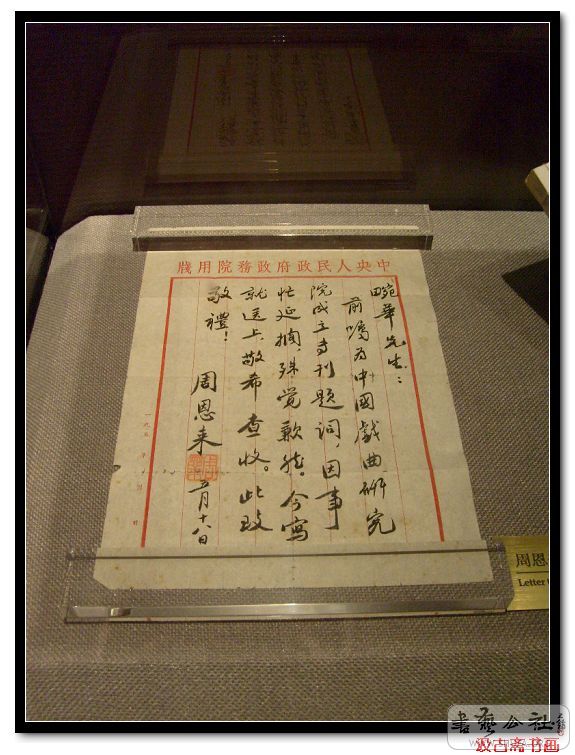 中央人民政府政務院用牋
畹華先生：
前嘱为中國戲曲研究
院成立专刊题词，因事
忙延搁，殊觉歉然。今寫
就送上，敬希查收。此致
敬禮！
周恩来
五月十八日
一九五 年 月 日
周恩
Letter
書藝公社
汲古斋书画